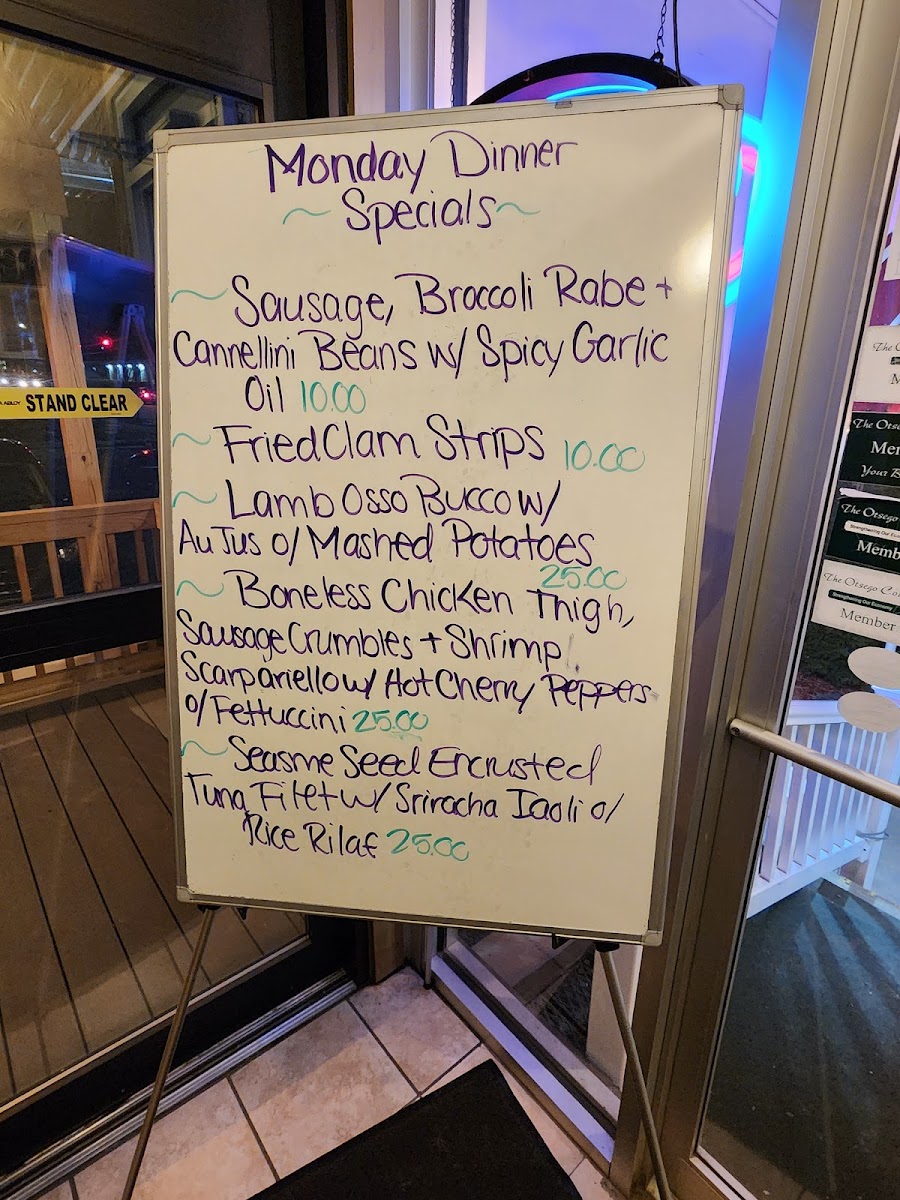 Monday Dinner
~ Specials ~
~ Sausage, Broccoli Rabe +
Cannellini Beans w/ Spicy Garlic
Oil 10.00
~ Fried Clam Strips 10.00
~ Lamb Osso Bucco w/
Au Jus o/ Mashed Potatoes
25.00
~ Boneless Chicken Thigh,
Sausage Crumbles + Shrimp
Scarpariello w/ Hot Cherry Peppers
o/ Fettuccini 25.00
~ Seasme Seed Encrusted
Tuna Filet w/ Sriracha Iaoli o/
Rice Rilaf 25.00
STAND CLEAR
The Otsego
Your B
The Otsego
Strengthening Our Economy
Memb
The Otsego Co
Strengthening Our Economy
Member